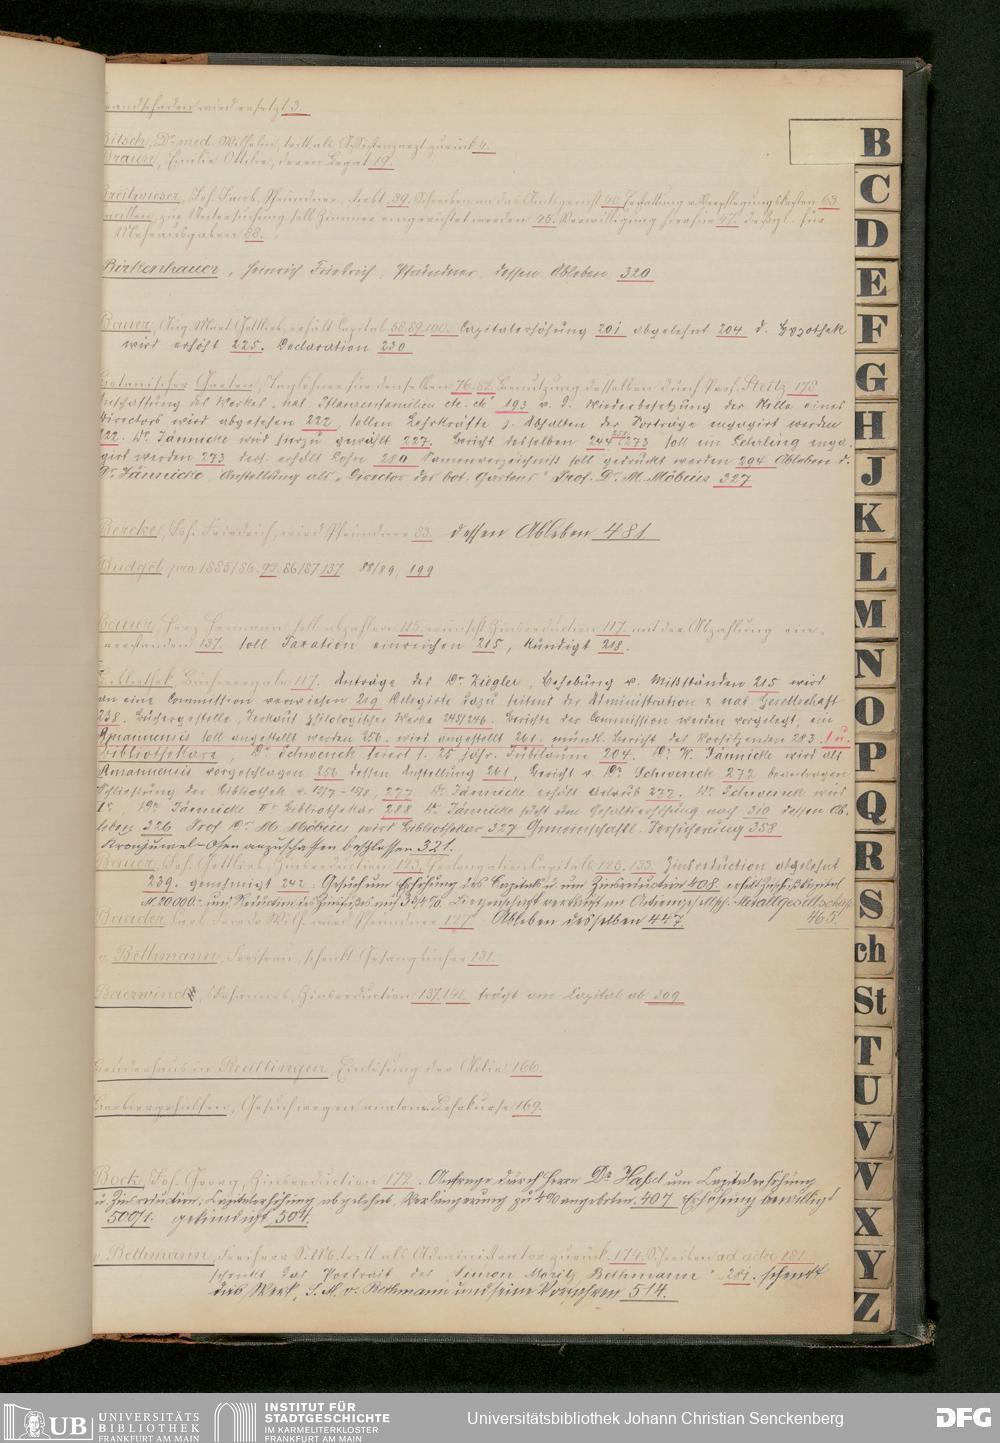 wird ersetzt 3.
Dr. med. Wilhelm, tritt als Assistenzarzt zurück 4.
Braun, Emilie Ottilie, deren Legat 19.
Breitwieser, Joh. Jacob, Pfründner, stirbt 39. Schreiben an das Amtsgericht 40. 63
zur Untersuchung soll Zimmer eingerichtet werden 45. Verwilligung hierfür 47. desgl. für
Mehrausgaben 58.
Birkenhauer, Heinrich Friedrich, Pfründner, dessen Ableben 320
Bauer, Aug. Mart. Gottlieb, erhält Capital 58. 89. 100. Capitalerhöhung 201 abgelehnt 204 d. Hypothek
wird erhöht 225. Declaration 230
Botanischer Garten, Taglöhner für denselben 76. 82. Benutzung desselben durch Prof. Steitz 178
Anschaffung des Werkes "nat. Pflanzenfamilien etc. etc." 193 v. d. Wiederbesetzung der Stelle eines
Directors wird abgesehen 222, sollen Lehrkräfte z. Abhalten der Vorträge engagirt werden
222. Dr. Jännicke wird hierzu gewählt 227. Bericht desselben 244 273 soll ein Lehrling enga-
girt werden 273 ders. erhält Lohn 280 Samenverzeichniß soll gedruckt werden 294 Ableben d.
Dr. Jännicke, Anstellung als "Director des bot. Gartens" Prof. Dr. M. Möbius 327
Joh. Friedrich, wird Pfründner 83. dessen Ableben 481
Budget pro 1885/86. 92. 86/87 137 88/89, 199
Bauer, Herz Hermann, soll abzahlen 115. wünscht Zinsreduction 117. mit der Abzahlung ein-
verstanden 137. soll Taxation einreichen 215, kündigt 218.
Bibliothek, Bücherregale 117. Anträge des Dr. Ziegler, Behebung v. Mißständen 215 wird
an eine Commission verwiesen 219 Delegirte dazu seitens der Administration & nat. Gesellschaft
238. Büchergestelle, Verkauf philologischer Werke 245/246. Berichte der Commission werden vorgelegt, ein
Amanuensis soll angestellt werden 256. wird angestellt 261. mündl. Bericht des Vorsitzenden 283.
Bibliothekare, Dr. Schwenck feiert s. 25 jähr. Jubiläum 204. Dr. W. Jännicke wird als
Amanuensis vorgeschlagen 256 dessen Anstellung 261, Bericht v. Dr. Schwenck 272 beantragen
Schließung der Bibliothek 277 Dr. Jännicke erhält Urlaub 277. Dr. Schwenck wird
Ir, Dr. Jännicke IIr Bibliothekar 288 Dr. Jännicke sucht um Gehaltserhöhung nach 310 dessen Ab-
leben 326 Prof. Dr. M. Möbius wird Bibliothekar 327 Gemeinschaftl. Versicherung 358
Kronjuwel-Ofen anzuschaffen beschlossen 321.
Bauer, Joh. Gottlieb, Zinsreduction 123. Prolongation Capitals 125. 133. Zinsreduction abgelehnt
239. genehmigt 242. Gesuch um Erhöhung des Capitals u. um Zinsreduction 408. erhält Zuschußkapital
M. 20000.- und Reduction des Zinsfußes auf 3 3/4 %. Liegenschaft verkauft an Actiengesellsch. Metallgesellschaft
465.
Baader, Carl Wilh. wird Pfründner 127. Ableben desselben 447
v. Bethmann, Freifrau, schenkt Gesangbücher 131.
Baerwindt, Johannes, Zinsreduction 137. 141. trägt am Capital ab 309
Bruderhaus in Reutlingen, Einlösung der Actie 166.
Barbiergehülfen, Gesuch wegen anatom. Lehrkurse 169.
Bock, Joh. Georg, Zinsreduction 172. Anfrage durch Herrn Dr. um Capitalerhöhung
u. Zinsreduction, Capitalerhöhung abgelehnt, Verlängerung zu 4% angeboten 407 Erhöhung bewilligt
500/1. gekündigt 504.
v. Bethmann, Freiherr S. M. tritt als Administrator zurück 174. Schreiben ad acta 181
schenkt das Portrait des "Simon Moritz Bethmann" 281. schenkt
das Werk, S. M. v. Bethmann und seine Vorfahren 514.
B
C
D
E
F
G
H
J
K
L
M
N
O
P
Q
R
S
Sch
St
T
U
V
W
X
Y
Z
UB UNIVERSITÄTS
BIBLIOTHEK
FRANKFURT AM MAIN
INSTITUT FÜR
STADTGESCHICHTE
IM KARMELITERKLOSTER
FRANKFURT AM MAIN
Universitätsbibliothek Johann Christian Senckenberg
DFG